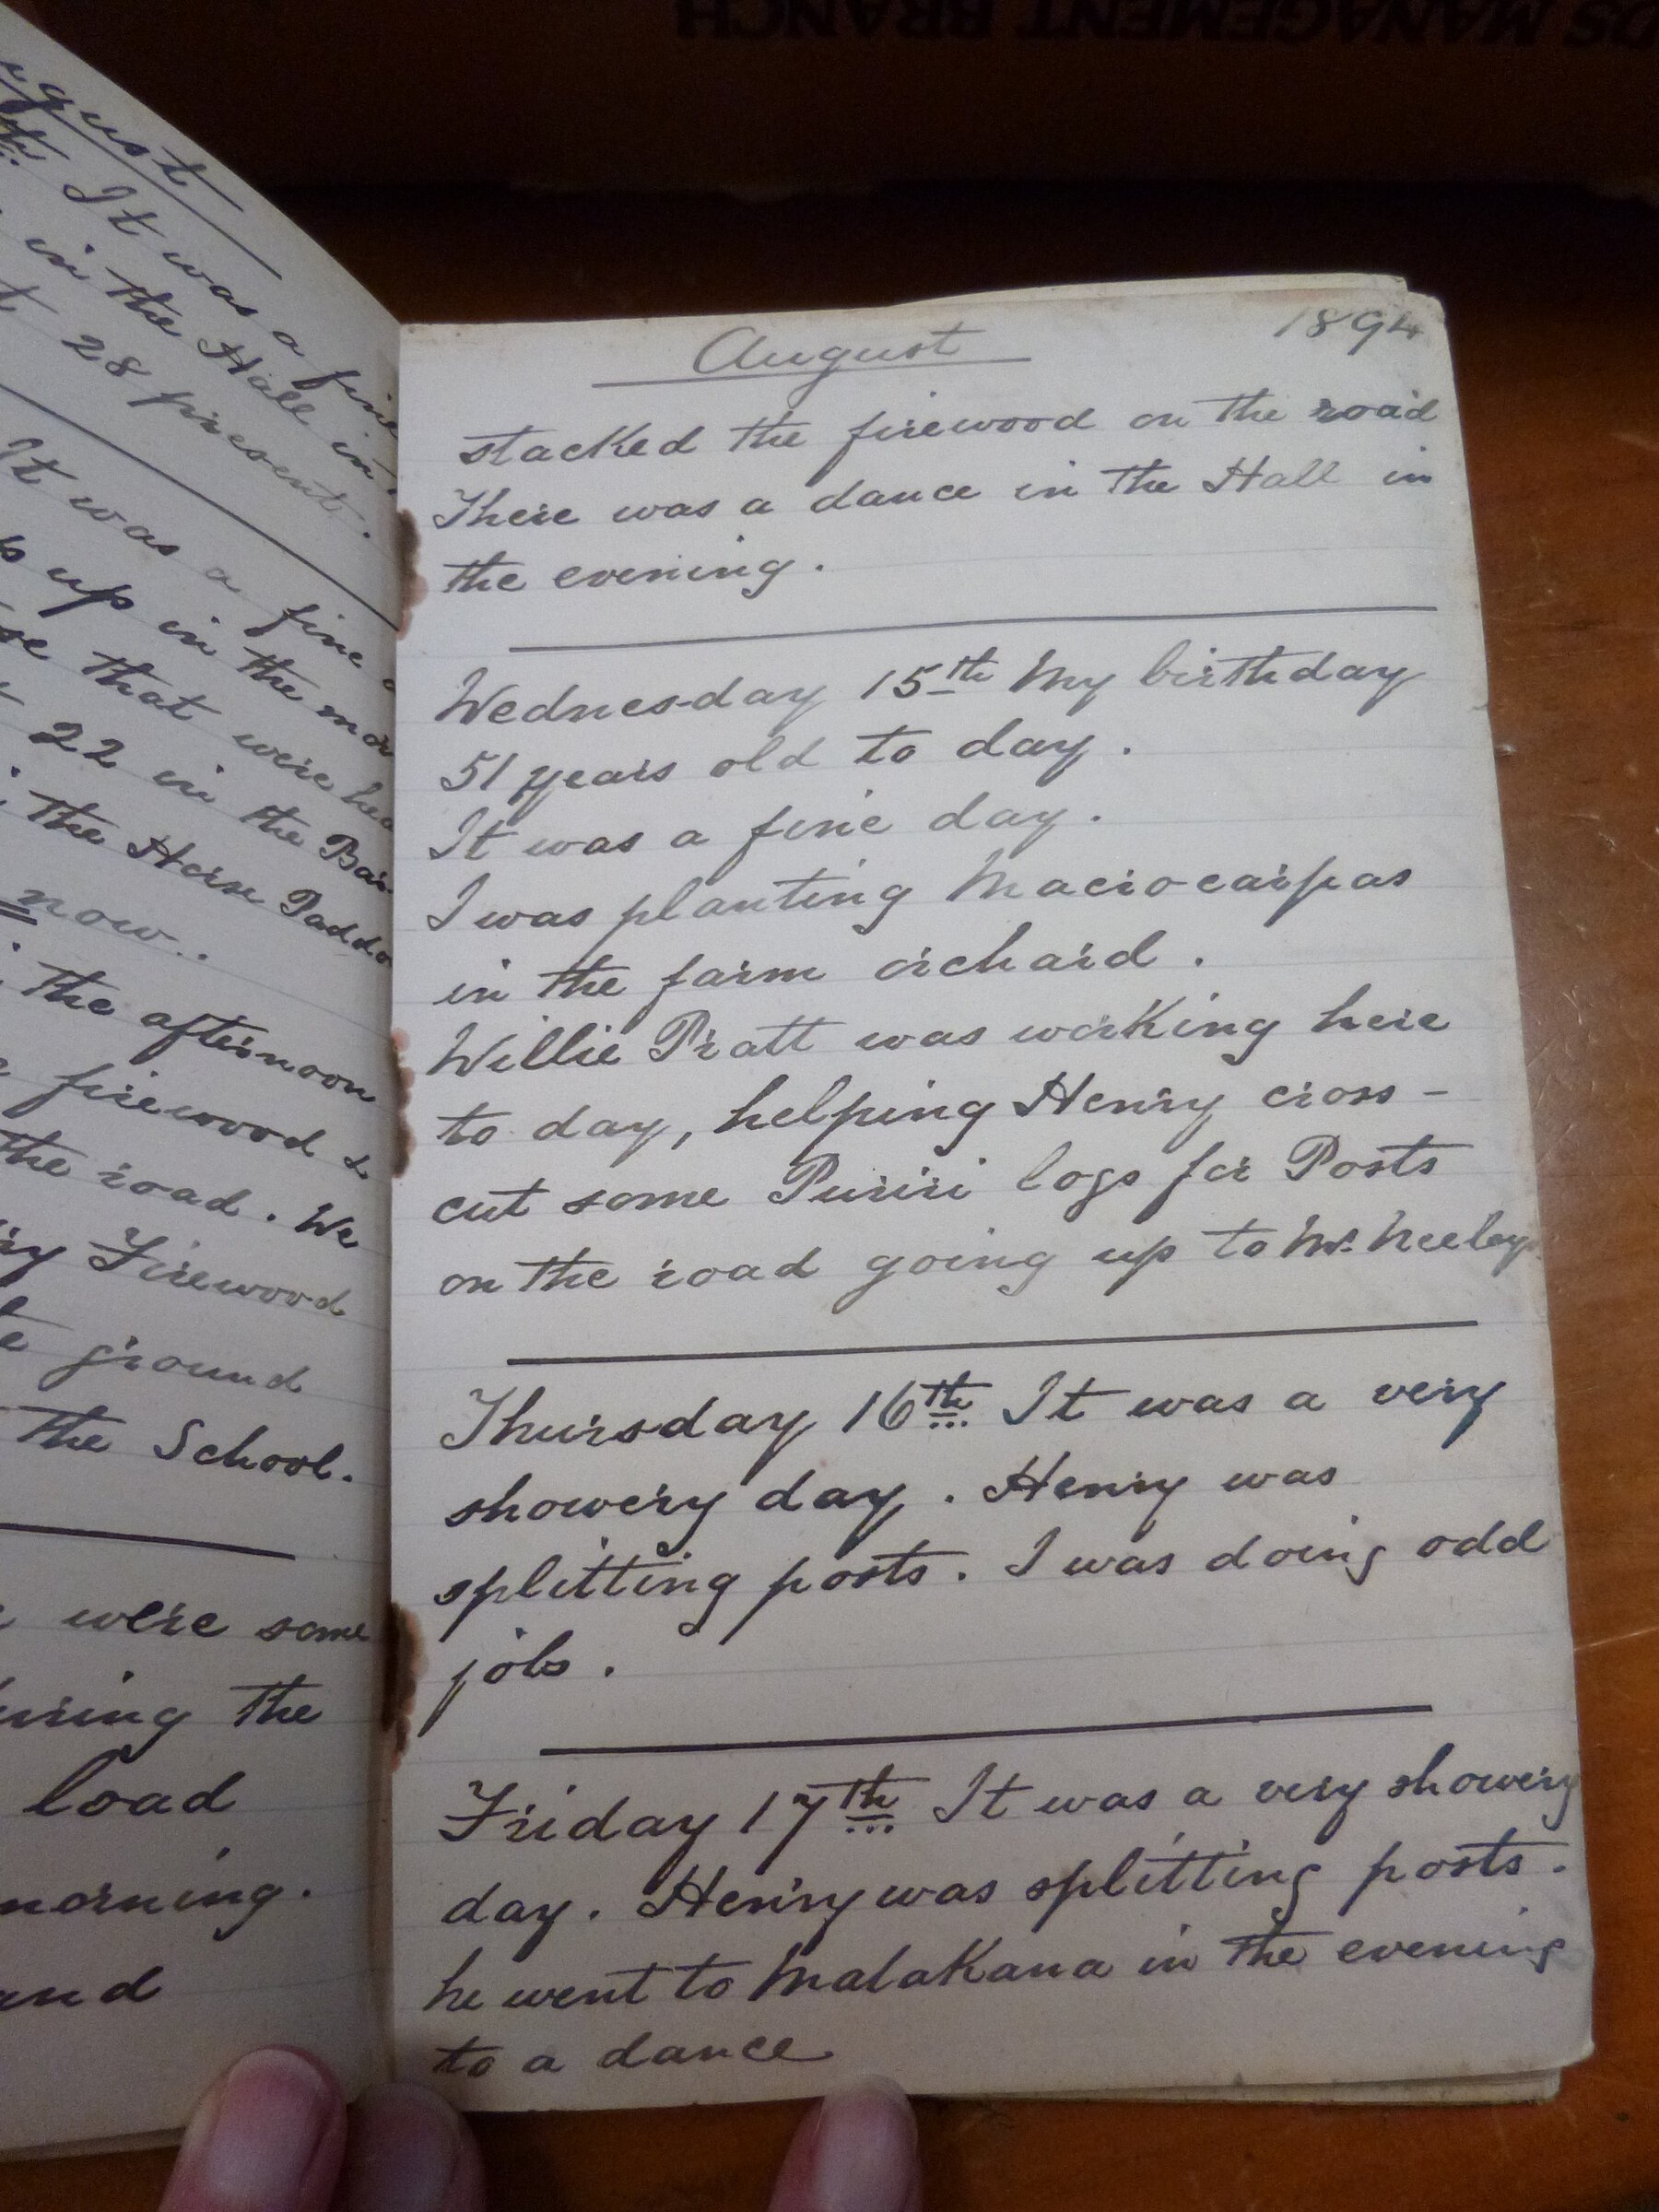 DS MANAGEMENT BRANCH
August
It was a fine
in the Hall in
28 present.
It was a fine
up in the
that were
22 in the
the Horse
now..
the afternoon
firewood &
the road. We
Firewood
ground
the School.
were some
the
load
morning.
and
August 1894
stacked the firewood on the road
There was a dance in the Hall in
the evening.
Wednesday 15th My birthday
51 years old to day.
It was a fine day.
I was planting Macrocarpas
in the farm orchard.
Willie Pratt was working here
to day, helping Henry cross-
cut some Puriri logs for Posts
on the road going up to Mr. Neeley
Thursday 16th It was a very
showery day. Henry was
splitting posts. I was doing odd
jobs.
Friday 17th It was a very showery
day. Henry was splitting posts.
he went to Matakana in the evening
to a dance